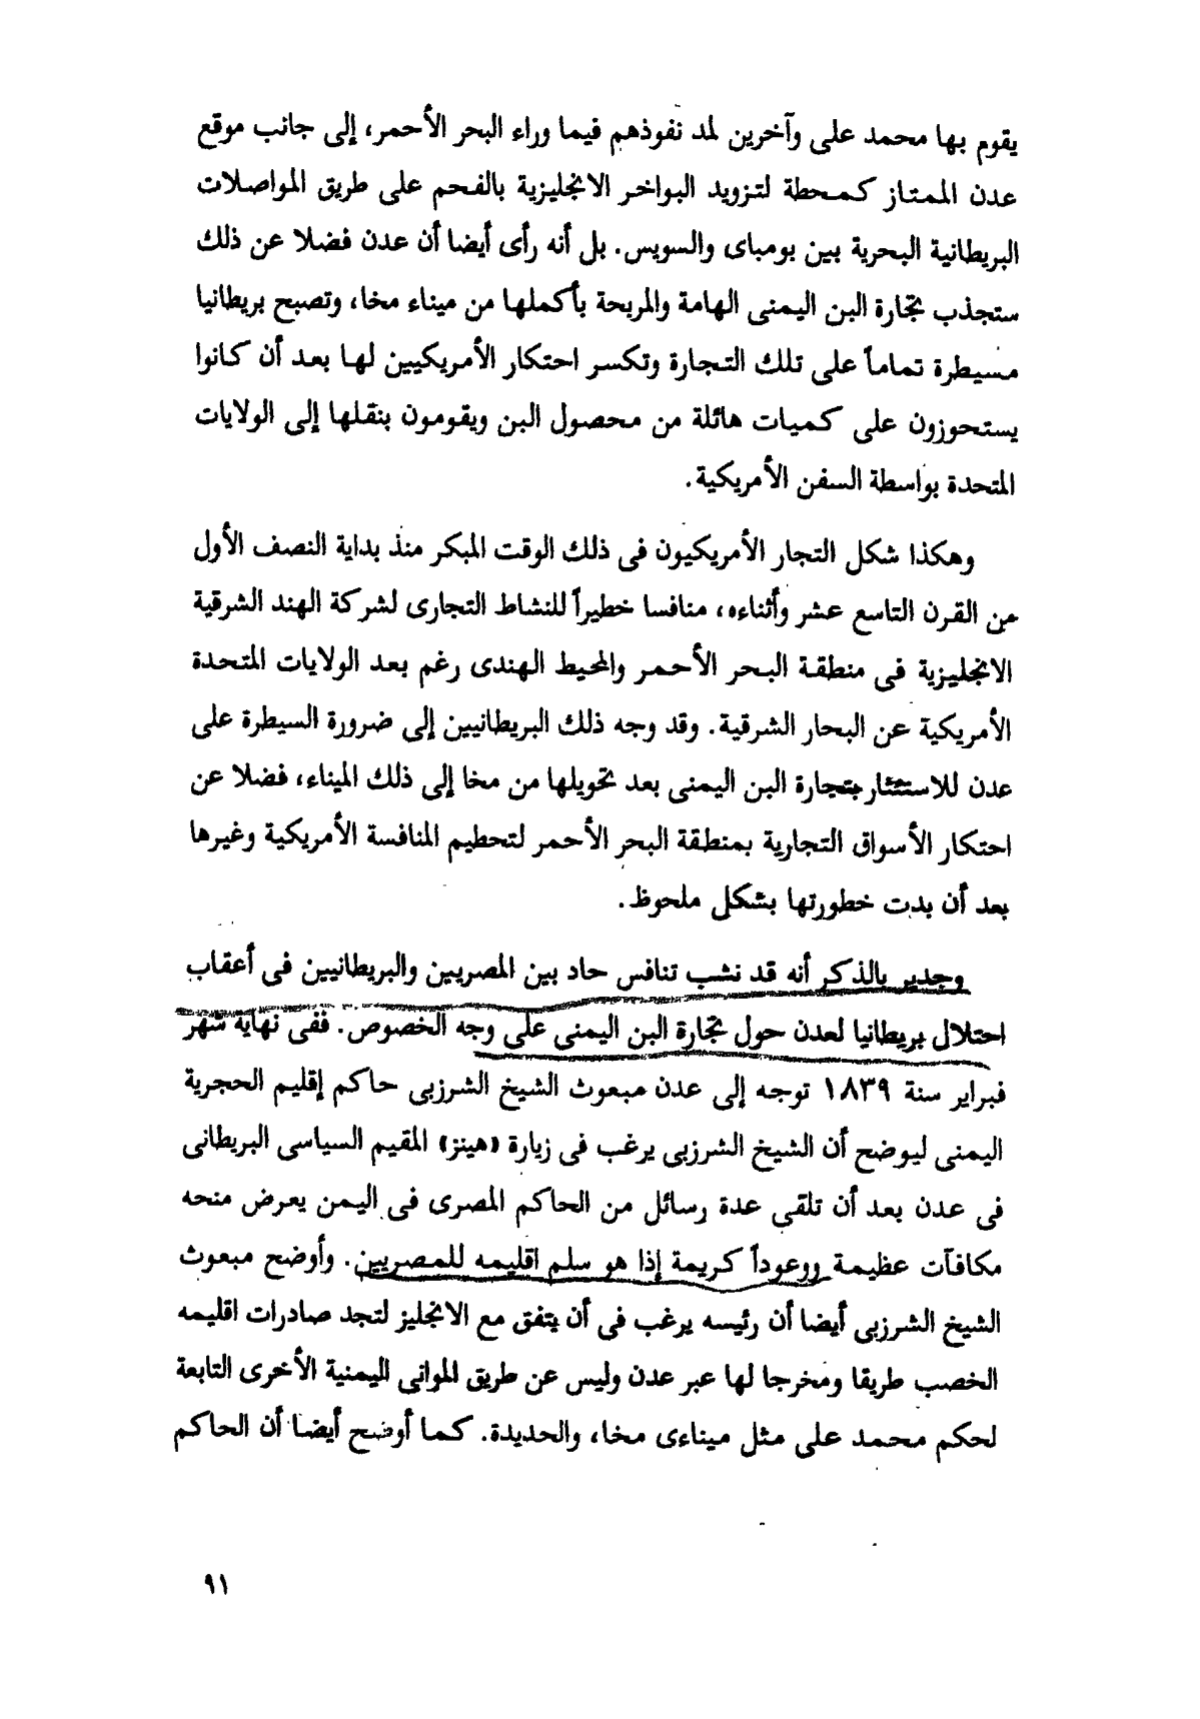 يقوم بها محمد على وآخرين لمد نفوذهم فيما وراء البحر الأحمر، إلى جانب موقع
عدن الممتاز كمحطة لتزويد البواخر الانجليزية بالفحم على طريق المواصلات
البريطانية البحرية بين بومباى والسويس. بل أنه رأى أيضا أن عدن فضلا عن ذلك
ستجذب تجارة البن اليمنى الهامة والمربحة بأكملها من ميناء مخا، وتصبح بريطانيا
مسيطرة تماماً على تلك التجارة وتكسر احتكار الأمريكيين لها بعد أن كانوا
يستحوزون على كميات هائلة من محصول البن ويقومون بنقلها إلى الولايات
المتحدة بواسطة السفن الأمريكية.
وهكذا شكل التجار الأمريكيون فى ذلك الوقت المبكر منذ بداية النصف الأول
من القرن التاسع عشر وأثناءه، منافسا خطيراً للنشاط التجارى لشركة الهند الشرقية
الانجليزية فى منطقة البحر الأحمر والمحيط الهندى رغم بعد الولايات المتحدة
الأمريكية عن البحار الشرقية. وقد وجه ذلك البريطانيين إلى ضرورة السيطرة على
عدن للاستئثار بتجارة البن اليمنى بعد تحويلها من مخا إلى ذلك الميناء، فضلا عن
احتكار الأسواق التجارية بمنطقة البحر الأحمر لتحطيم المنافسة الأمريكية وغيرها
بعد أن بدت خطورتها بشكل ملحوظ.
وجدير بالذكر أنه قد نشب تنافس حاد بين المصريين والبريطانيين فى أعقاب
احتلال بريطانيا لعدن حول تجارة البن اليمنى على وجه الخصوص. ففى نهاية شهر
فبراير سنة ١٨٣٩ توجه إلى عدن مبعوث الشيخ الشرزبى حاكم إقليم الحجرية
اليمنى ليوضح أن الشيخ الشرزبى يرغب فى زيارة «هينز» المقيم السياسى البريطانى
فى عدن بعد أن تلقى عدة رسائل من الحاكم المصرى فى اليمن يعرض منحه
مكافآت عظيمة ووعوداً كريمة إذا هو سلم اقليمه للمصريين. وأوضح مبعوث
الشيخ الشرزبى أيضا أن رئيسه يرغب فى أن يتفق مع الانجليز لتجد صادرات اقليمه
الخصب طريقا ومخرجا لها عبر عدن وليس عن طريق الموانى اليمنية الأخرى التابعة
لحكم محمد على مثل ميناءى مخا، والحديدة. كما أوضح أيضا أن الحاكم
٩١